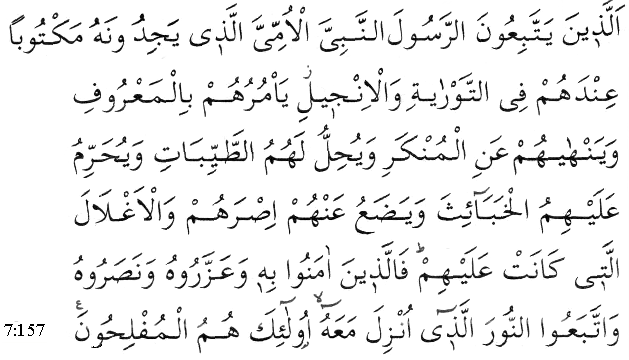 اَلَّذٖينَ يَتَّبِعُونَ الرَّسُولَ النَّبِىَّ الْاُمِّىَّ الَّذٖى يَجِدُونَهُ مَكْتُوباً
عِنْدَهُمْ فِى التَّوْرٰيةِ وَالْاِنْجٖيلِ يَاْمُرُهُمْ بِالْمَعْرُوفِ
وَيَنْهٰيهُمْ عَنِ الْمُنْكَرِ وَيُحِلُّ لَهُمُ الطَّيِّبَاتِ وَيُحَرِّمُ
عَلَيْهِمُ الْخَبَٓائِثَ وَيَضَعُ عَنْهُمْ اِصْرَهُمْ وَالْاَغْلَالَ
الَّتٖى كَانَتْ عَلَيْهِمْؕ فَالَّذٖينَ اٰمَنُوا بِهٖ وَعَزَّرُوهُ وَنَصَرُوهُ
7:157 وَاتَّبَعُوا النُّورَ الَّذٖٓى اُنْزِلَ مَعَهُٓۙ اُولٰٓئِكَ هُمُ الْمُفْلِحُونَ